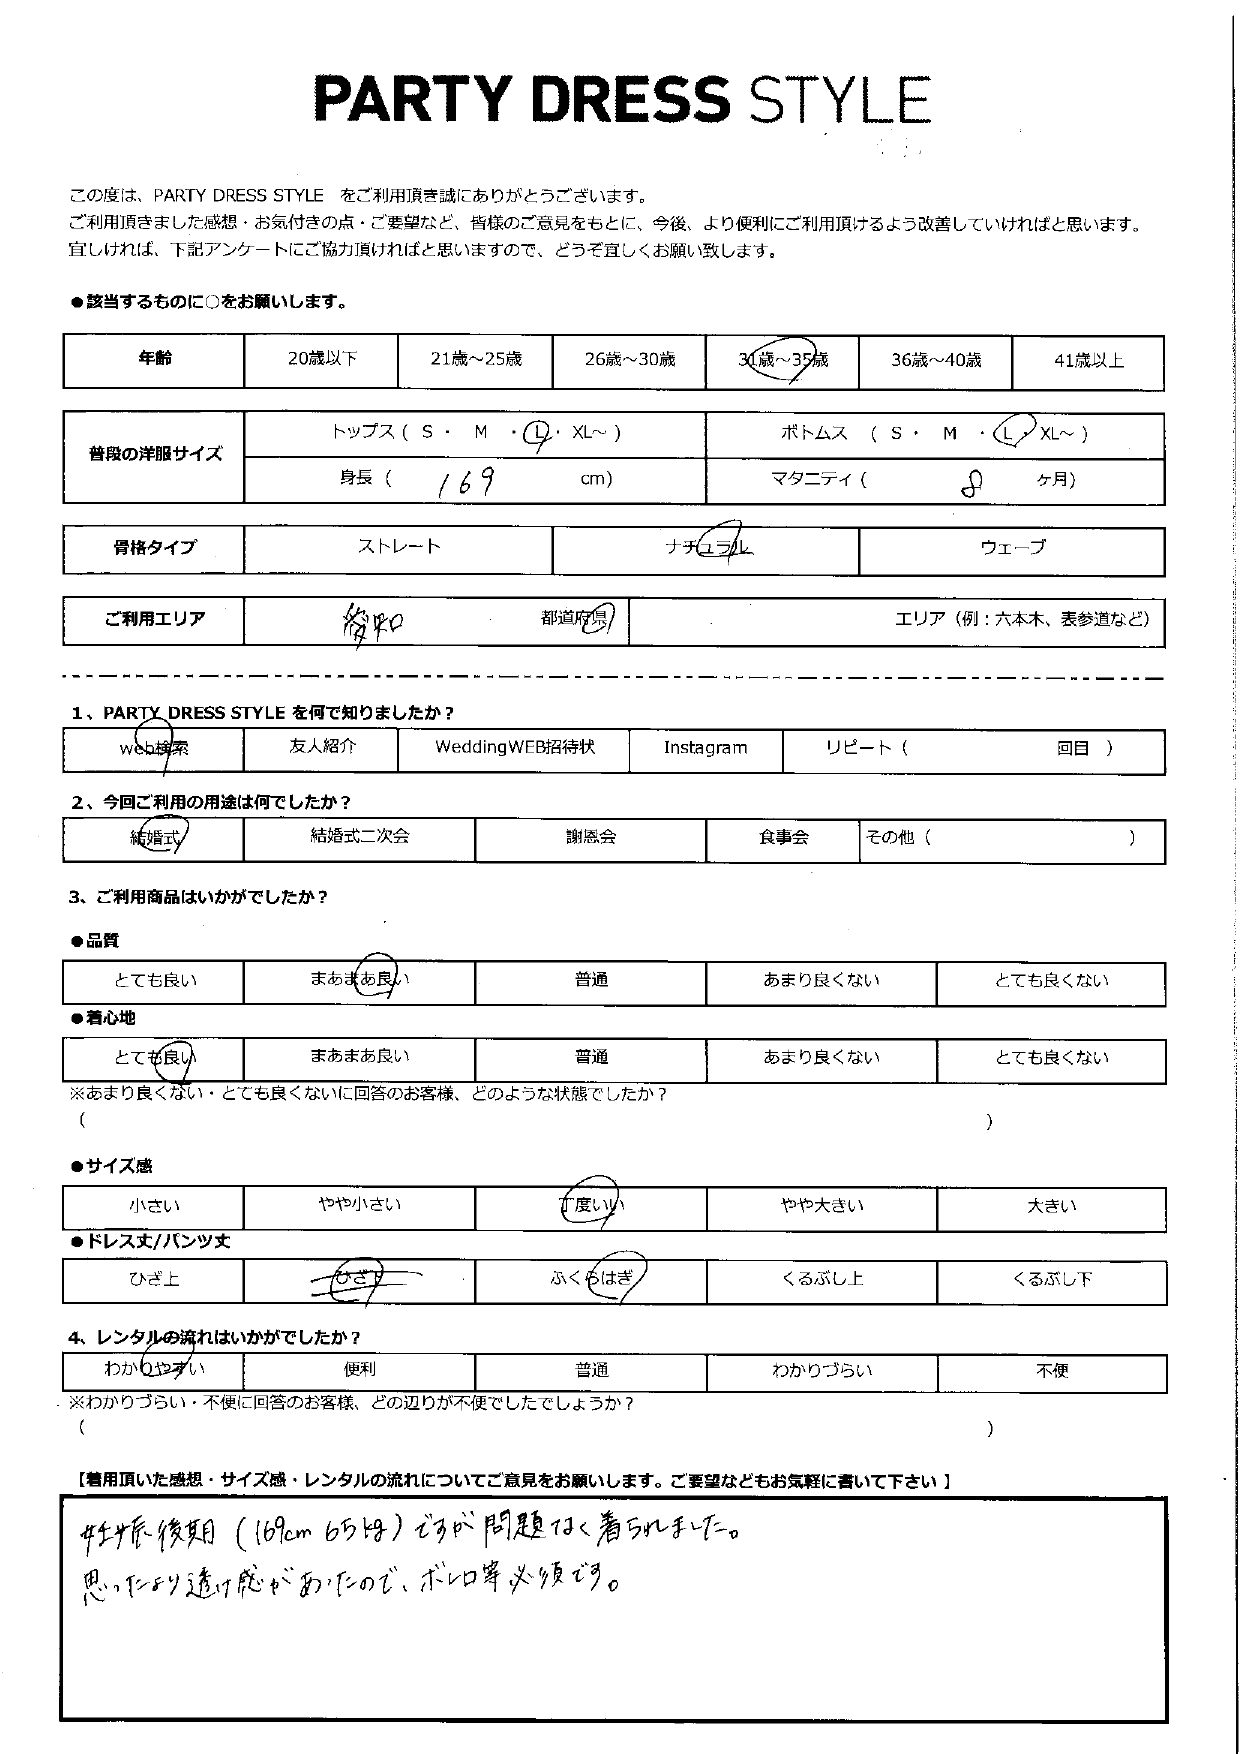 PARTY DRESS STYLE
この度は、PARTY DRESS STYLE をご利用頂き誠にありがとうございます。
ご利用頂きました感想・お気付きの点・ご要望など、皆様のご意見をもとに、今後、より便利にご利用頂けるよう改善していければと思います。
宜しければ、下記アンケートにご協力頂ければと思いますので、どうぞ宜しくお願い致します。
●該当するものに○をお願いします。
年齢 20歳以下 21歳～25歳 26歳～30歳 31歳～35歳 36歳～40歳 41歳以上
普段の洋服サイズ トップス ( S ・ M ・ L ・ XL～ ) ボトムス ( S ・ M ・ L ・ XL～ )
身長 ( 169 cm) マタニティ ( 8 ヶ月)
骨格タイプ ストレート ナチュラル ウェーブ
ご利用エリア 愛知 都道府県 エリア（例：六本木、表参道など）
1、PARTY DRESS STYLE を何で知りましたか？
web検索 友人紹介 WeddingWEB招待状 Instagram リピート ( 回目 )
2、今回ご利用の用途は何でしたか？
結婚式 結婚式二次会 謝恩会 食事会 その他 ( )
3、ご利用商品はいかがでしたか？
●品質
とても良い まあまあ良い 普通 あまり良くない とても良くない
●着心地
とても良い まあまあ良い 普通 あまり良くない とても良くない
※あまり良くない・とても良くないに回答のお客様、どのような状態でしたか？
( )
●サイズ感
小さい やや小さい 丁度いい やや大きい 大きい
●ドレス丈/パンツ丈
ひざ上 ひざ下 ふくらはぎ くるぶし上 くるぶし下
4、レンタルの流れはいかがでしたか？
わかりやすい 便利 普通 わかりづらい 不便
※わかりづらい・不便に回答のお客様、どの辺りが不便でしたでしょうか？
( )
【着用頂いた感想・サイズ感・レンタルの流れについてご意見をお願いします。ご要望などもお気軽に書いて下さい 】
妊娠後期 (169cm 65kg) ですが問題なく着られました。
思ったより透け感があったので、ボレロ等必須です。